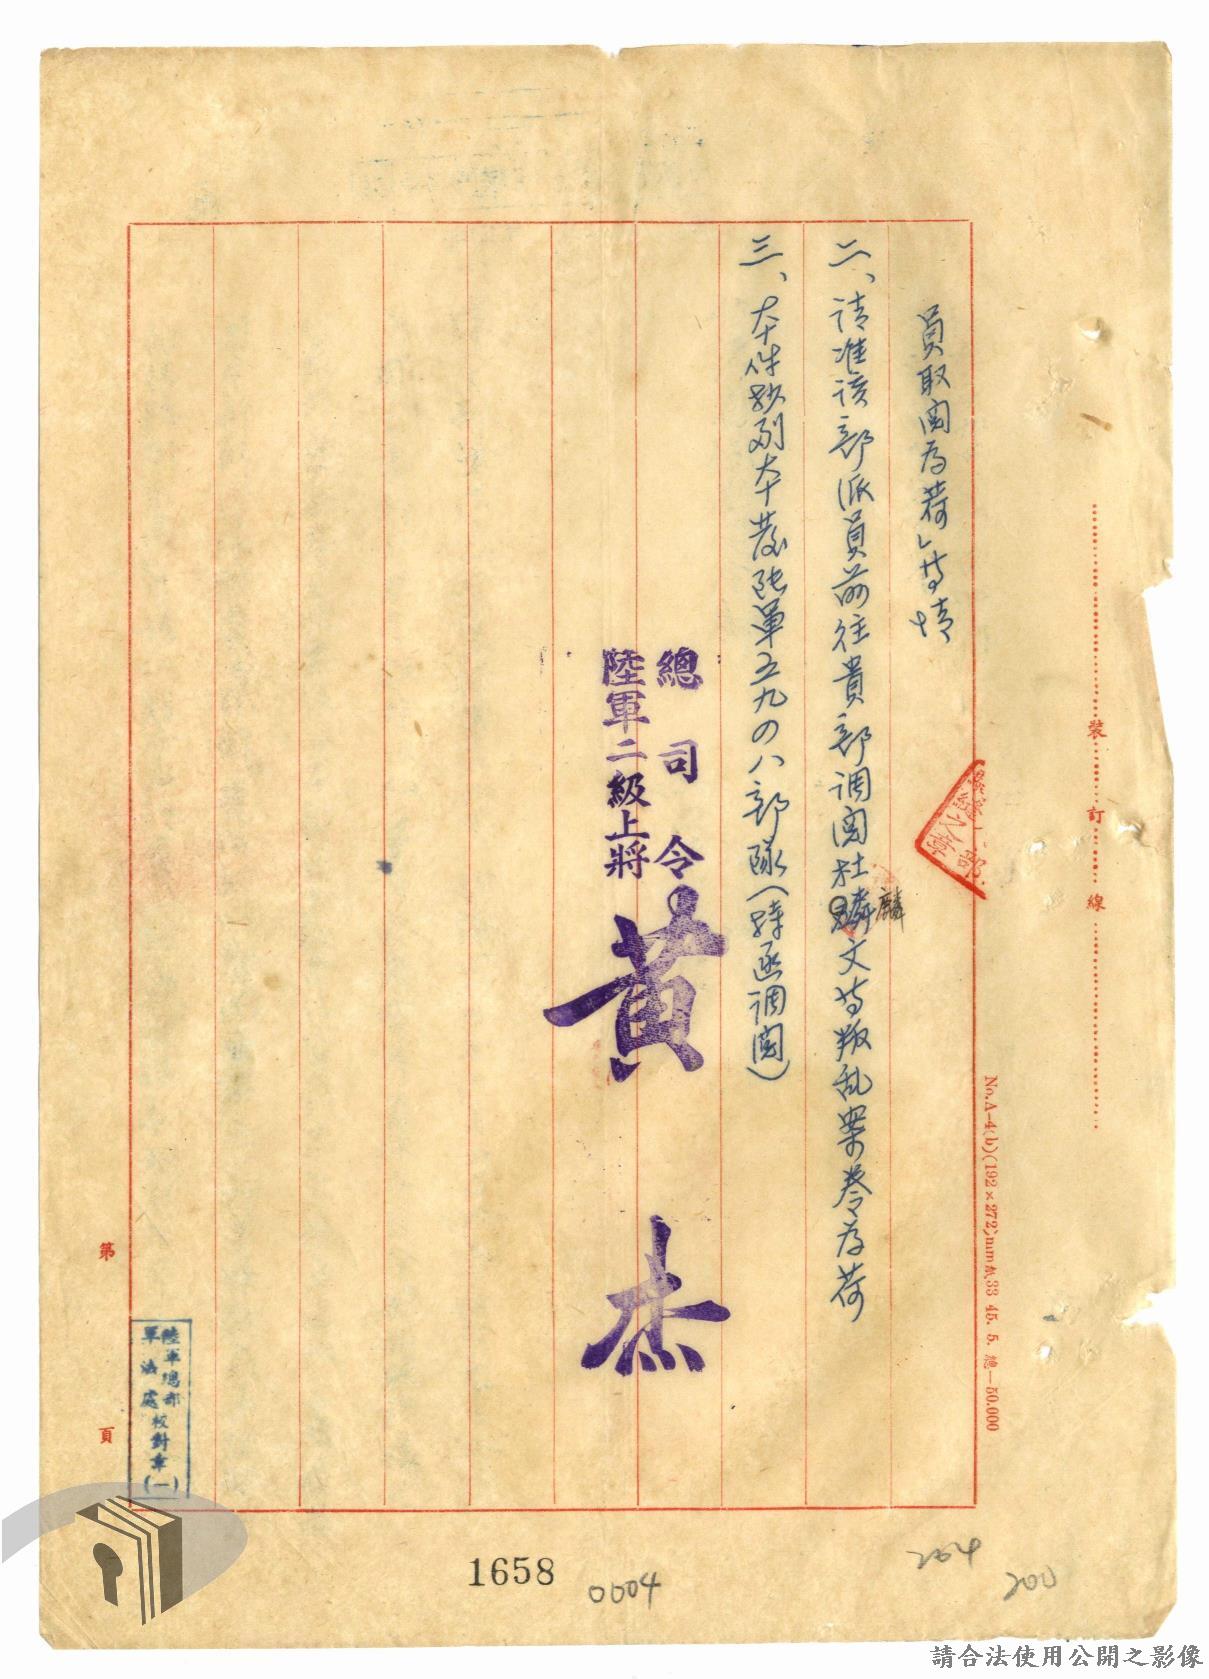 員取閱為荷」等情
二、請准該部派員前往貴部調閱杜麟文等叛乱案卷為荷
麟
三、本件抄副本發陸軍五九〇八部隊(請逕調閱)
總司令
陸軍二級上將
黃杰
裝 訂 線
No.A-4(b)(192×272)mm 紙33 45. 5. 總—50.000
第 頁
陸軍總部
軍法處校對章(一)
1658
0004
204
200
請合法使用公開之影像